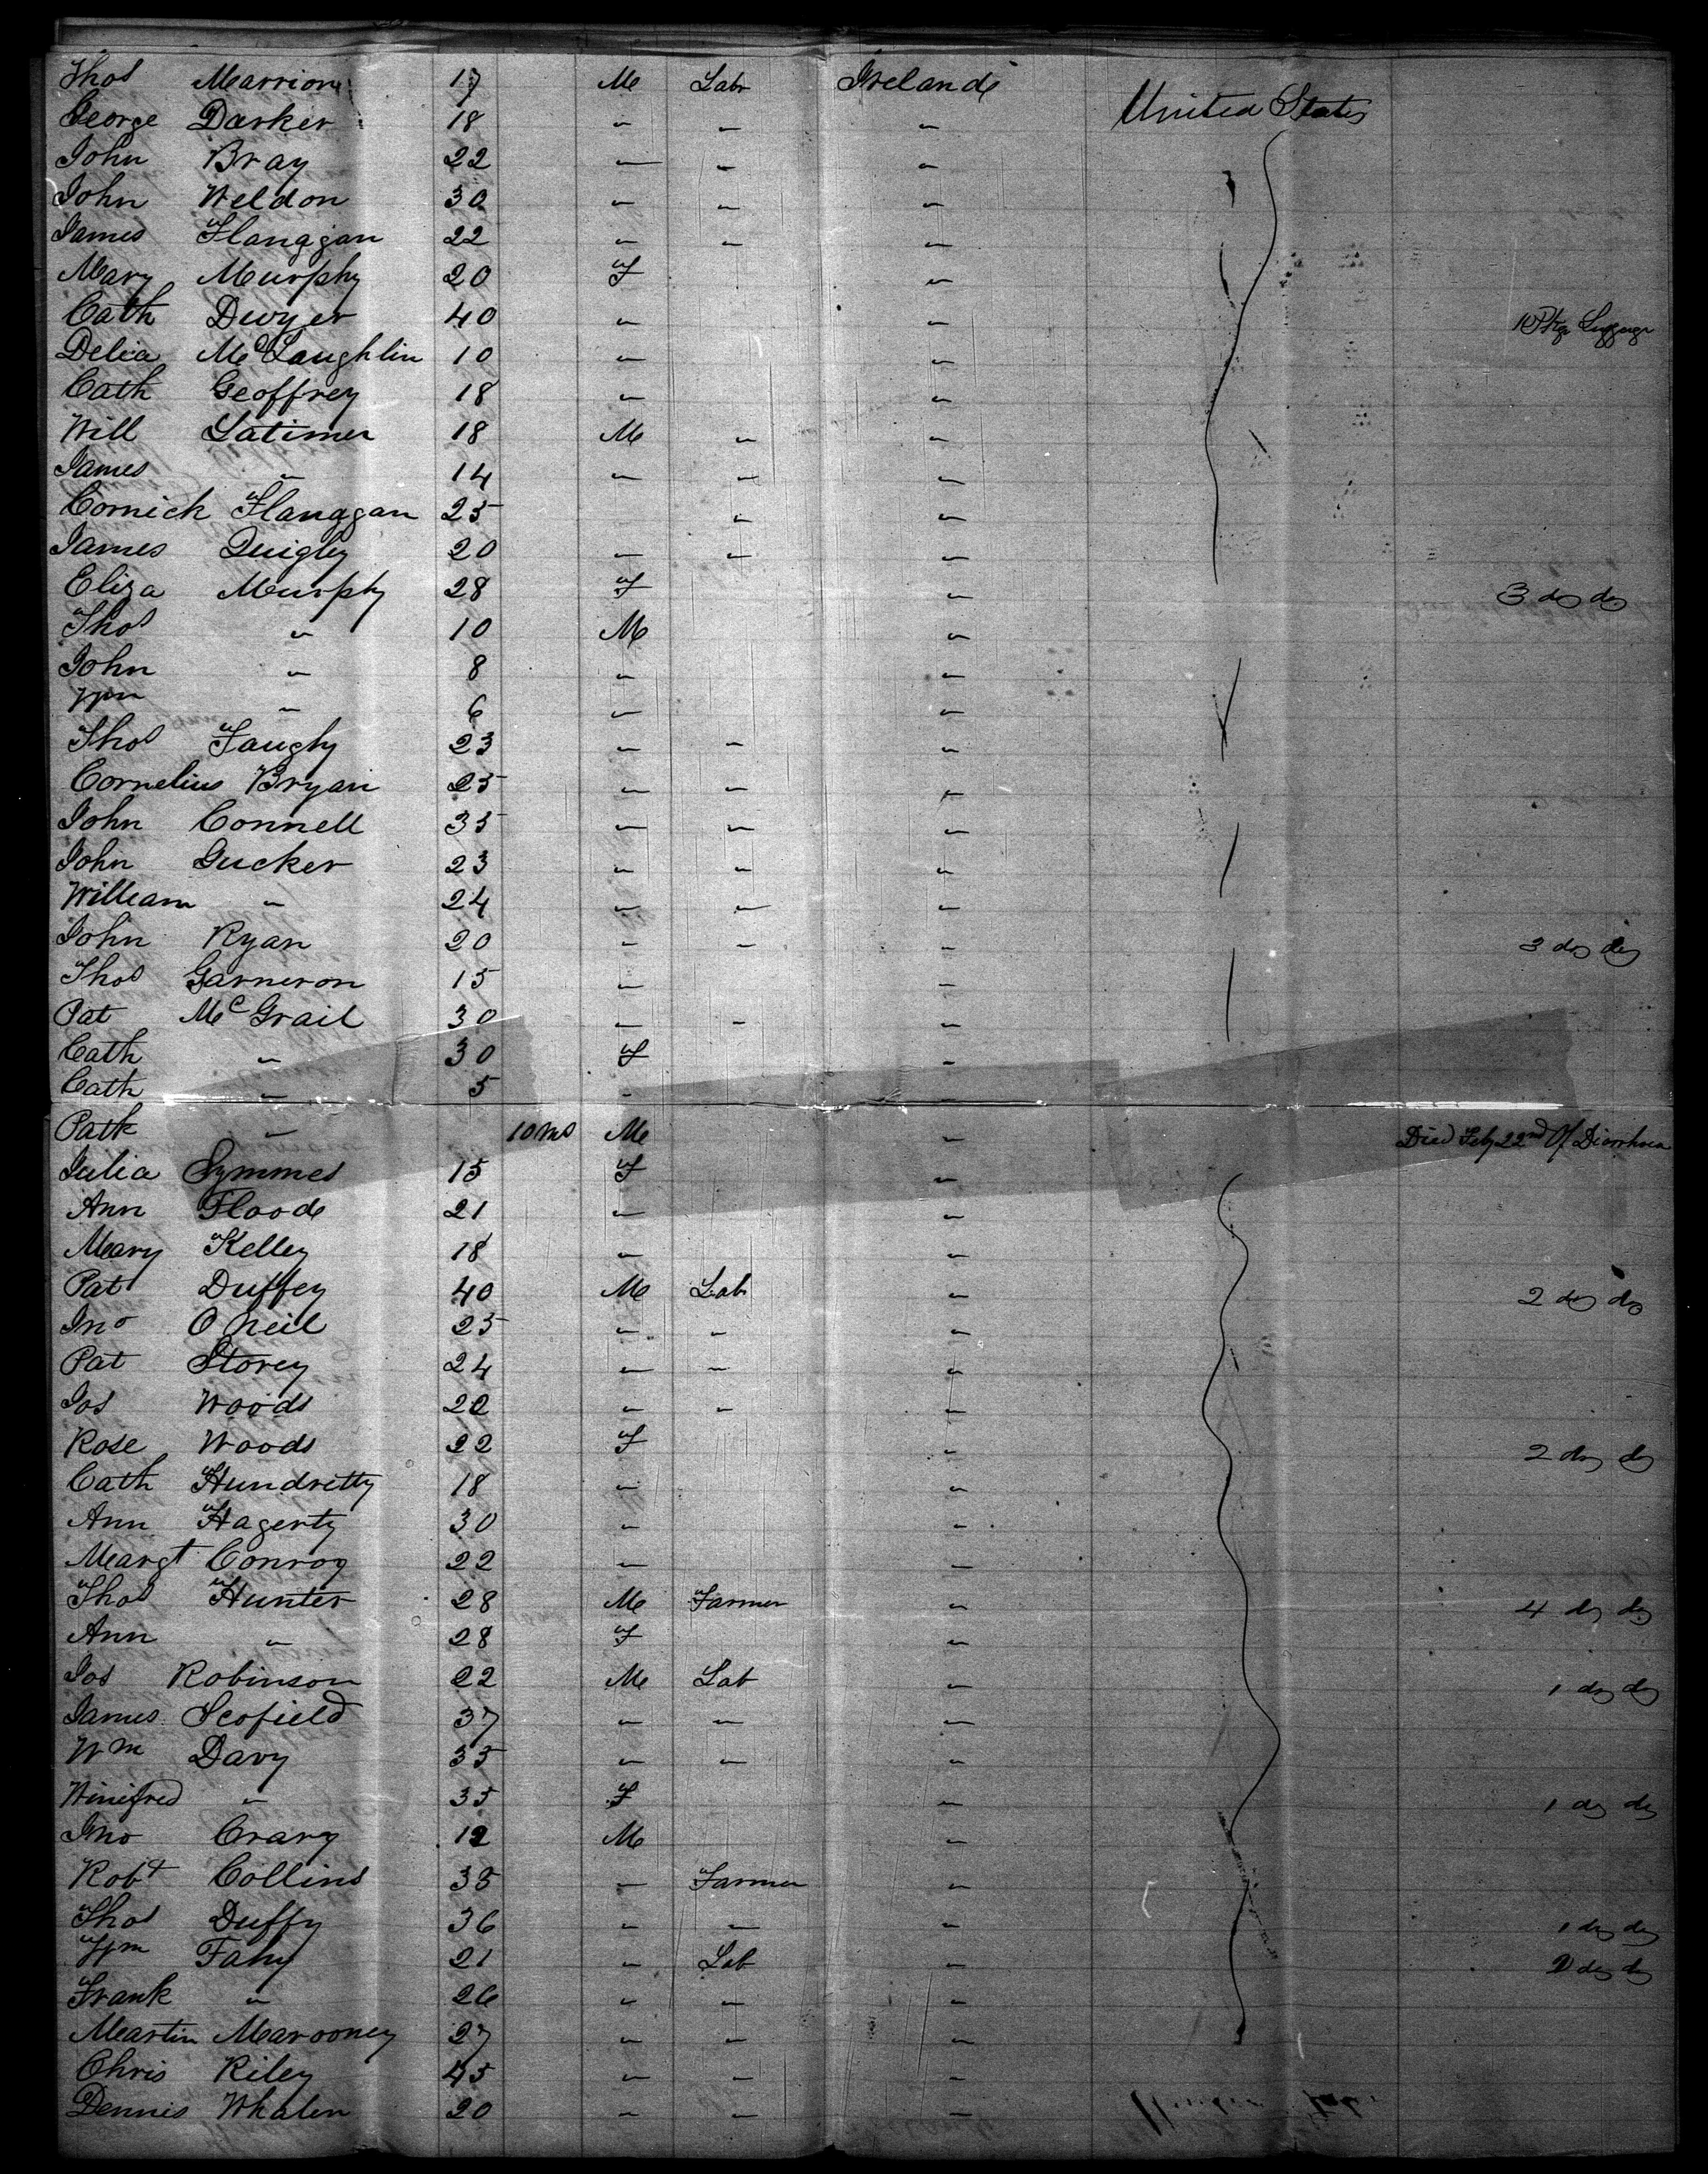 Thos Marrion 17 M Labr Ireland
George Darker 18 " " " United States
John Bray 22 " " "
John Weldon 30 " " "
James Flanagan 22 " " "
Mary Murphy 20 F "
Cath Dwyer 40 " " Pkgs Luggage
Delia McLaughlin 10 " "
Cath Geoffrey 18 " "
Will Latimer 18 M " "
James " 14 " " "
Cornick Flanagan 25 " "
James Quigley 20 " " "
Eliza Murphy 28 F " 3 do do
Thos " 10 M "
John " 8 " "
Wm " 6 " "
Thos Faughy 23 " " "
Cornelius Bryan 25 " " "
John Connell 35 " " "
John Gucker 23 " " "
William " 24 " " "
John Ryan 20 " " " 3 do do
Thos Garneron 15 " "
Pat McGrail 30 " " "
Cath " 30 F "
Cath " 5 " "
Patk " 10 Ms M " Died Feby 22nd Of Diorrhea
Julia Symmes 15 F "
Ann Floode 21 " "
Mary Kelley 18 " "
Pat Duffey 40 M Lab " 2 do do
Jno O Neil 25 " " "
Pat Storey 24 " " "
Jos Woods 22 " " "
Rose Woods 22 F " 2 do do
Cath Hundretty 18 " "
Ann Hagerty 30 " "
Margt Conroy 22 " "
Thos Hunter 28 M Farmer " 4 do do
Ann " 28 F "
Jos Robinson 22 M Lab " 1 do do
James Scofield 37 " " "
Wm Davy 35 " " "
Winifred " 35 F " 1 do do
Jno Crary 12 M "
Robt Collins 35 " Farmer "
Thos Duffy 36 " " " 1 do do
Wm Fahy 21 " Lab " 2 do do
Frank " 26 " " "
Martin Marooney 27 " " "
Chris Riley 45 " " "
Dennis Whalen 20 " " "